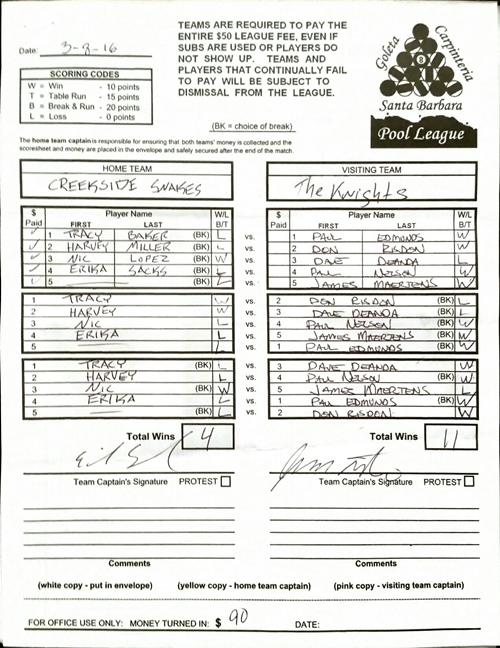 Date: 3-8-16
TEAMS ARE REQUIRED TO PAY THE
ENTIRE $50 LEAGUE FEE, EVEN IF
SUBS ARE USED OR PLAYERS DO
NOT SHOW UP. TEAMS AND
PLAYERS THAT CONTINUALLY FAIL
TO PAY WILL BE SUBJECT TO
DISMISSAL FROM THE LEAGUE.
SCORING CODES
W = Win - 10 points
T = Table Run - 15 points
B = Break & Run - 20 points
L = Loss - 0 points
Goleta Carpinteria
Santa Barbara
Pool League
(BK = choice of break)
The home team captain is responsible for ensuring that both teams' money is collected and the
scoresheet and money are placed in the envelope and safely secured after the end of the match.
HOME TEAM VISITING TEAM
CREEKSIDE SNAKES The Knights
$ Player Name W/L $ Player Name W/L
Paid FIRST LAST B/T Paid FIRST LAST B/T
✓ 1 TRACY BAKER (BK) L vs. 1 PAUL EDMUNDS W
✓ 2 HARVEY MILLER (BK) L vs. 2 DON RISDON W
✓ 3 NIC LOPEZ (BK) W vs. 3 DAVE DEANDA L
✓ 4 ERIKA SACKS (BK) L vs. 4 PAUL NELSON W
✓ 5 (BK) L vs. 5 JAMES MAERTENS W
1 TRACY W vs. 2 DON RISDON (BK) L
2 HARVEY W vs. 3 DAVE DEANDA (BK) L
3 NIC L vs. 4 PAUL NELSON (BK) W
4 ERIKA L vs. 5 JAMES MAERTENS (BK) W
5 L vs. 1 PAUL EDMUNDS (BK) W
1 TRACY (BK) L vs. 3 DAVE DEANDA W
2 HARVEY L vs. 4 PAUL NELSON (BK) W
3 NIC (BK) W vs. 5 JAMES MAERTENS L
4 ERIKA L vs. 1 PAUL EDMUNDS (BK) W
5 (BK) L vs. 2 DON RISDON W
Total Wins 4 Total Wins 11
Team Captain's Signature PROTEST Team Captain's Signature PROTEST
Comments Comments
(white copy - put in envelope) (yellow copy - home team captain) (pink copy - visiting team captain)
FOR OFFICE USE ONLY: MONEY TURNED IN: $ 90 DATE: